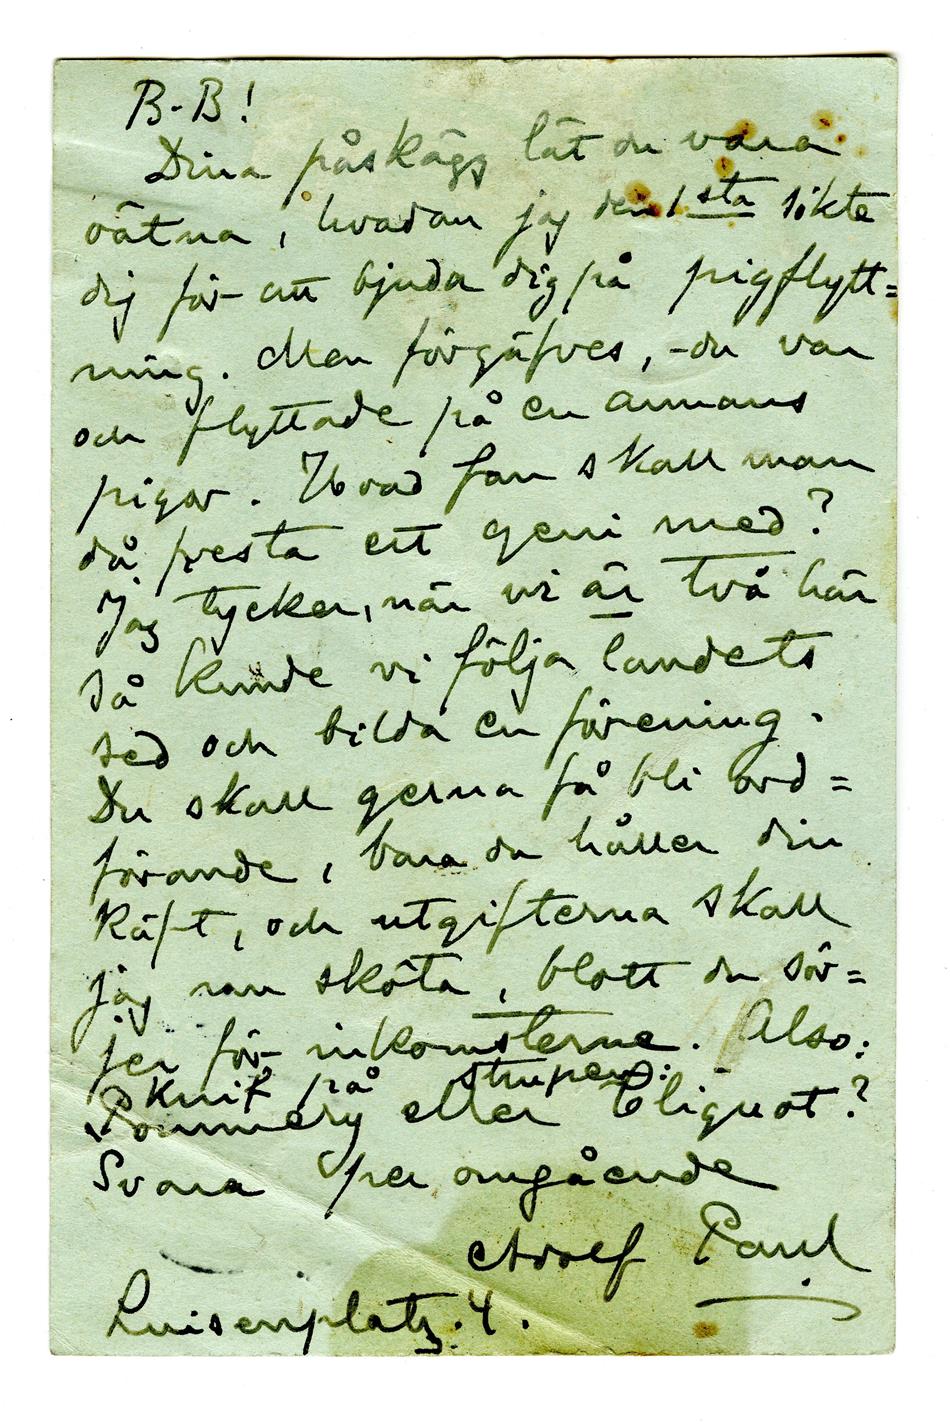 B-B!
Dina påskägg lät du vara
oätna, hvadan jag den 1sta sökte
dig för att bjuda dig på pigflytt=
ning. Men förgäfves, -du var
och flyttade på en annans
pigor. Hvad fan skall man
då fresta ett geni med?
Jag tycker, när vi är två här
så kunde vi följa landets
sed och bilda en förening.
Du skall gerna få bli ord=
förande, bara du håller din
käft, och utgifterna skall
jag nu sköta, blott du sör=
jer för inkomsterne. Also:
knif på strupen:
Pommery eller Cliquot?
Svara per omgående
Adolf Paul
Luisenplatz. 4.